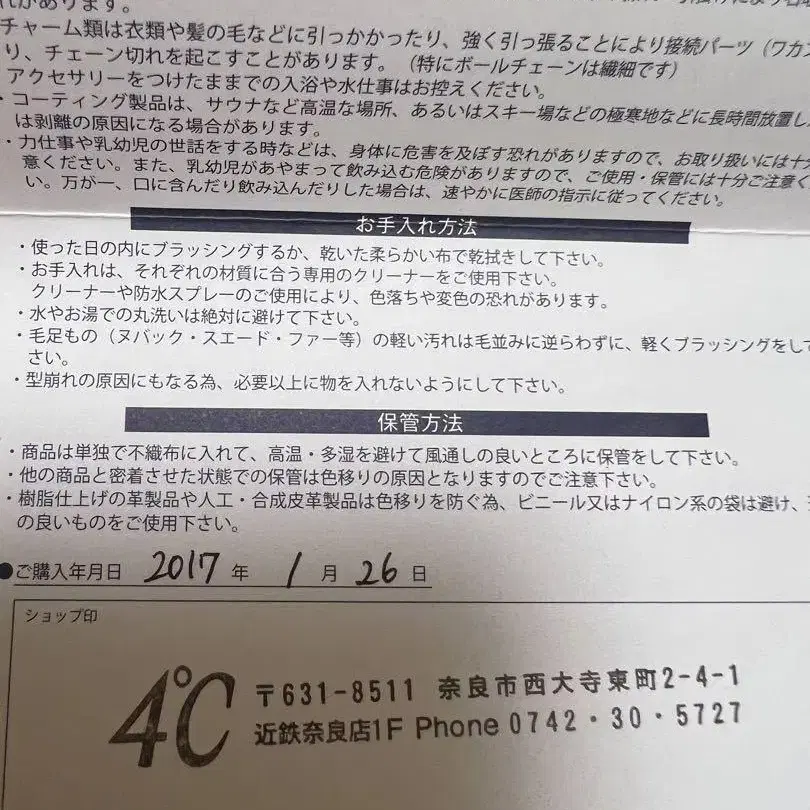 れがあります。
チャーム類は衣類や髪の毛などに引っかかったり、強く引っ張ることにより接続パーツ（ワカン
り、チェーン切れを起こすことがあります。（特にボールチェーンは繊細です）
アクセサリーをつけたままでの入浴や水仕事はお控えください。
・コーティング製品は、サウナなど高温な場所、あるいはスキー場などの極寒地などに長時間放置し
は剥離の原因になる場合があります。
・力仕事や乳幼児の世話をする時などは、身体に危害を及ぼす恐れがありますので、お取り扱いには十分
意ください。また、乳幼児があやまって飲み込む危険がありますので、ご使用・保管には十分ご注意く
い。万が一、口に含んだり飲み込んだりした場合は、速やかに医師の指示に従ってください。
お手入れ方法
・使った日の内にブラッシングするか、乾いた柔らかい布で乾拭きして下さい。
・お手入れは、それぞれの材質に合う専用のクリーナーをご使用下さい。
クリーナーや防水スプレーのご使用により、色落ちや変色の恐れがあります。
・水やお湯での丸洗いは絶対に避けて下さい。
・毛足もの（ヌバック・スエード・ファー等）の軽い汚れは毛並みに逆らわずに、軽くブラッシングをして
さい。
・型崩れの原因にもなる為、必要以上に物を入れないようにして下さい。
保管方法
・商品は単独で不織布に入れて、高温・多湿を避けて風通しの良いところに保管をして下さい。
・他の商品と密着させた状態での保管は色移りの原因となりますのでご注意下さい。
・樹脂仕上げの革製品や人工・合成皮革製品は色移りを防ぐ為、ビニール又はナイロン系の袋は避け、
の良いものをご使用下さい。
●ご購入年月日 2017 年 1 月 26 日
ショップ印
4℃
〒631-8511 奈良市西大寺東町2-4-1
近鉄奈良店1F Phone 0742・30・5727